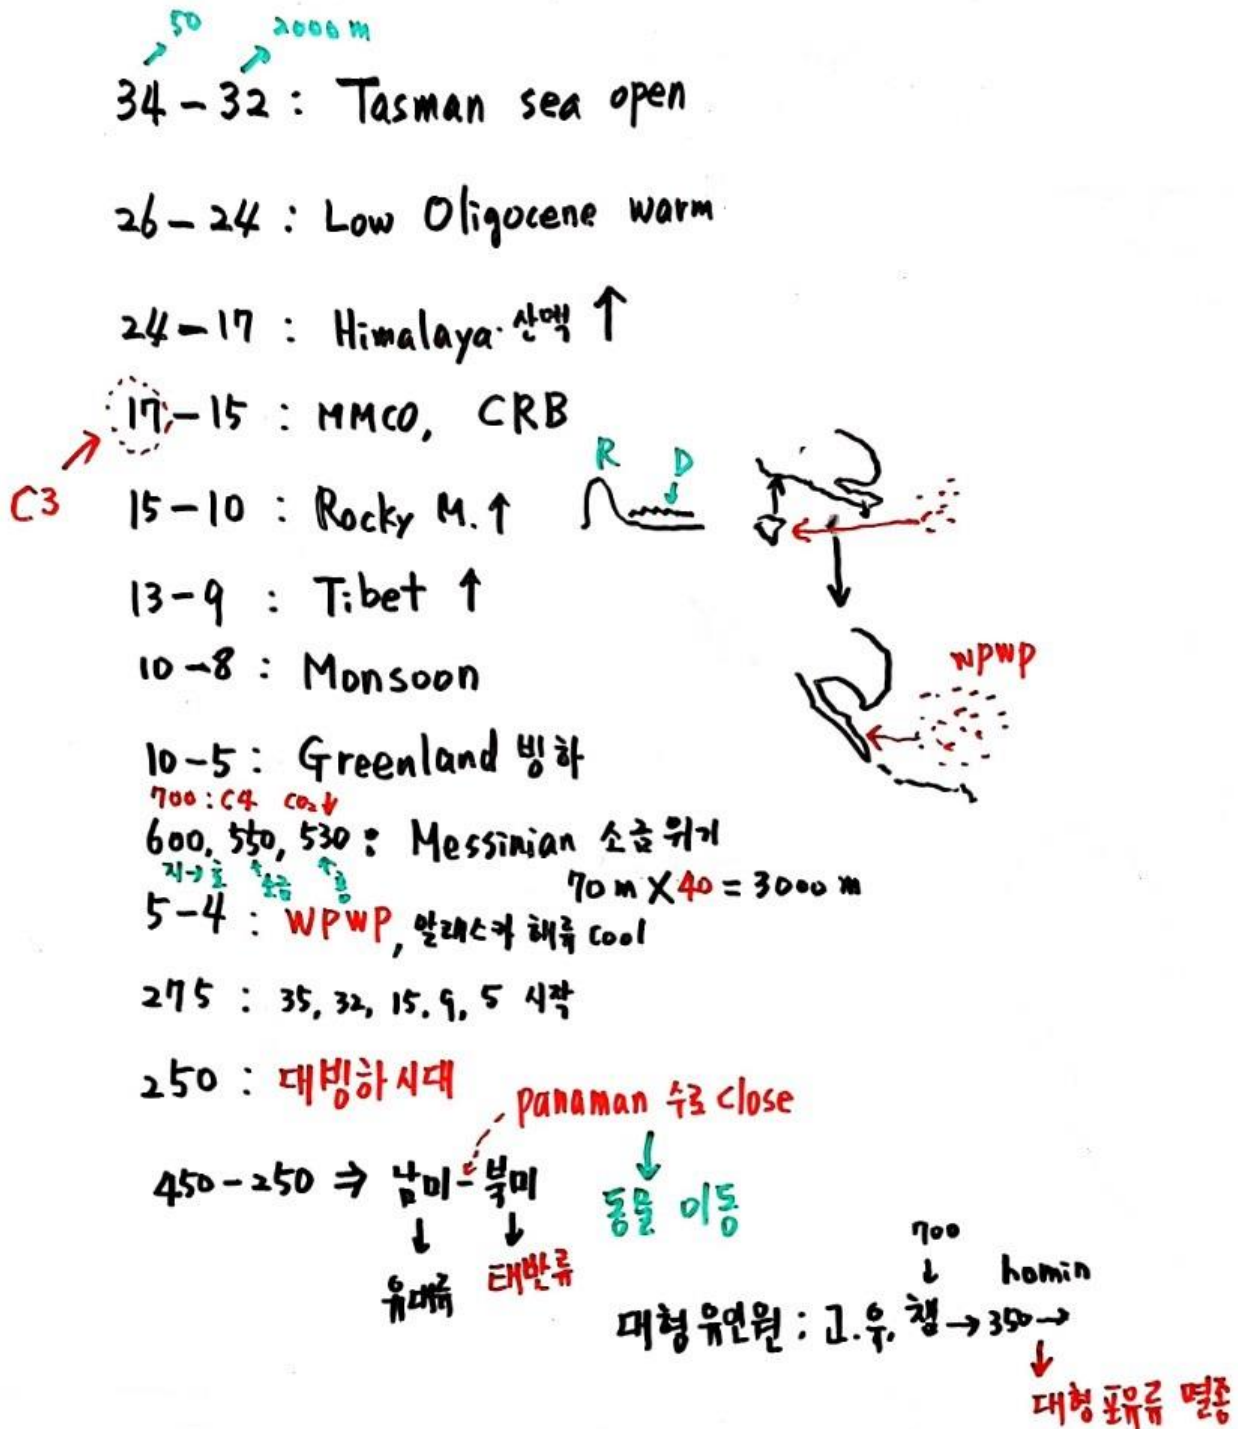 50 2000 m
34 - 32 : Tasman sea open
26 - 24 : Low Oligocene warm
24 - 17 : Himalaya. 산맥 ↑
17 - 15 : MMCO, CRB
C3
R D
15 - 10 : Rocky M. ↑
13 - 9 : Tibet ↑
10 - 8 : Monsoon
WPWP
10 - 5 : Greenland 빙하
700 : C4 CO₂↓
600, 550, 530 : Messinian 소금위기
지→호 소금 홍
70 m X 40 = 3000 m
5 - 4 : WPWP, 알래스카 해류 cool
275 : 35, 32, 15. 9, 5 시작
250 : 대빙하시대
panaman 수로 close
450 - 250 ⇒ 남미 - 북미
동물 이동
유대류 태반류
700
homin
대형유인원 : 고. 우. 챔 → 350 →
대형 포유류 멸종